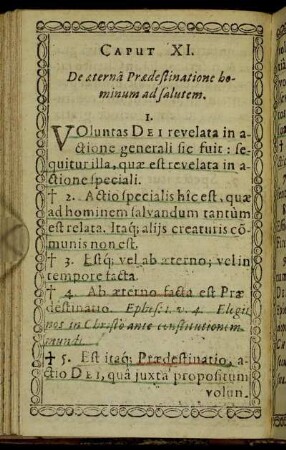 CAPUT XI.
De æternâ Prædestinatione ho-
minum ad salutem.
I.
VOluntas DEI revelata in a-
ctione generali sic fuit: se-
quitur illa, quæ est revelata in a-
ctione speciali.
† 2. Actio specialis hîc est, quæ
ad hominem salvandum tantùm
est relata. Itaq; alijs creaturis cõ-
munis non est.
† 3. Estq; vel ab æterno; vel in
tempore facta.
† 4. Ab æterno facta est Præ
destinatio. Ephes. 1. v. 4. Elegit
nos in Christo ante constitutionem
mundi.
† 5. Est itaq; Prædestinatio, a-
ctio DEI, quâ juxta propositum
volun.